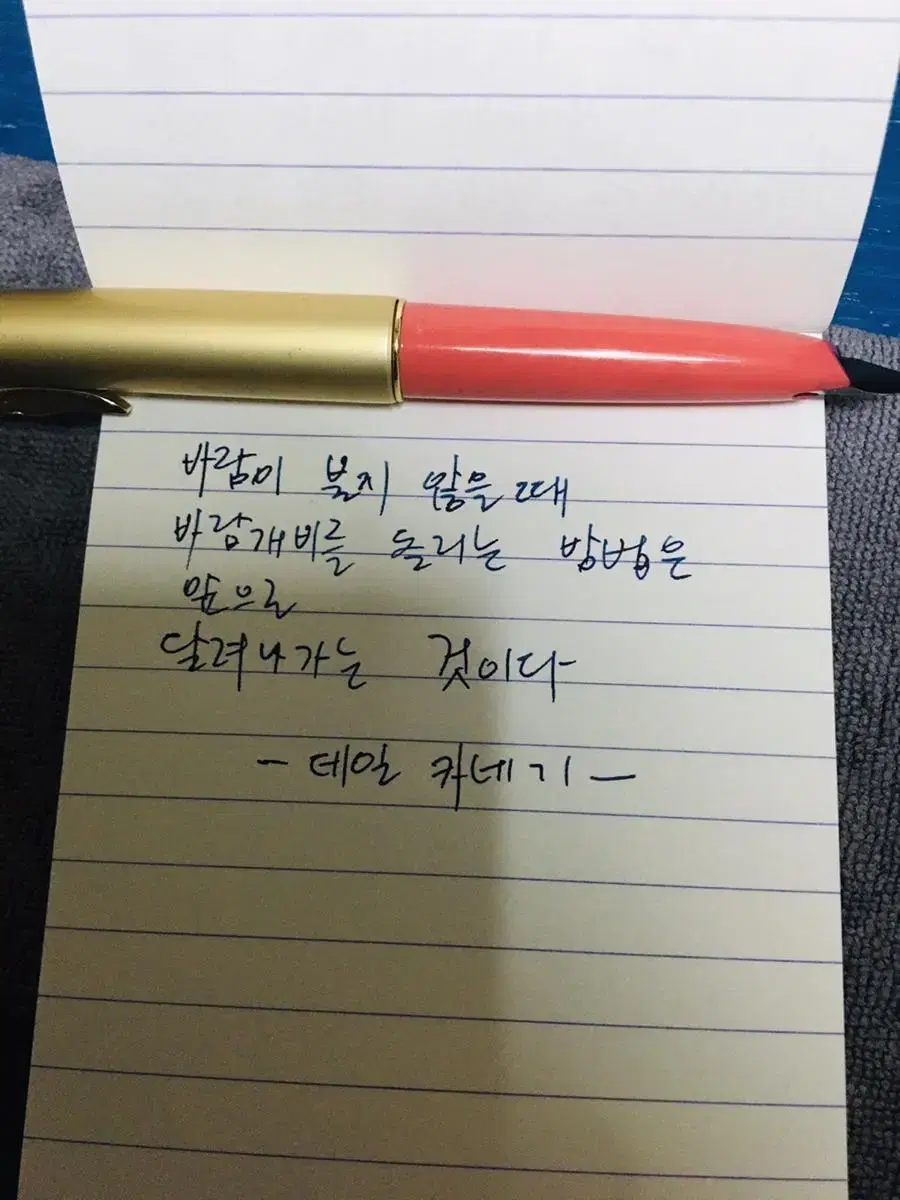 바람이 불지 않을 때
바람개비를 돌리는 방법은
앞으로
달려나가는 것이다
- 데일 카네기 -